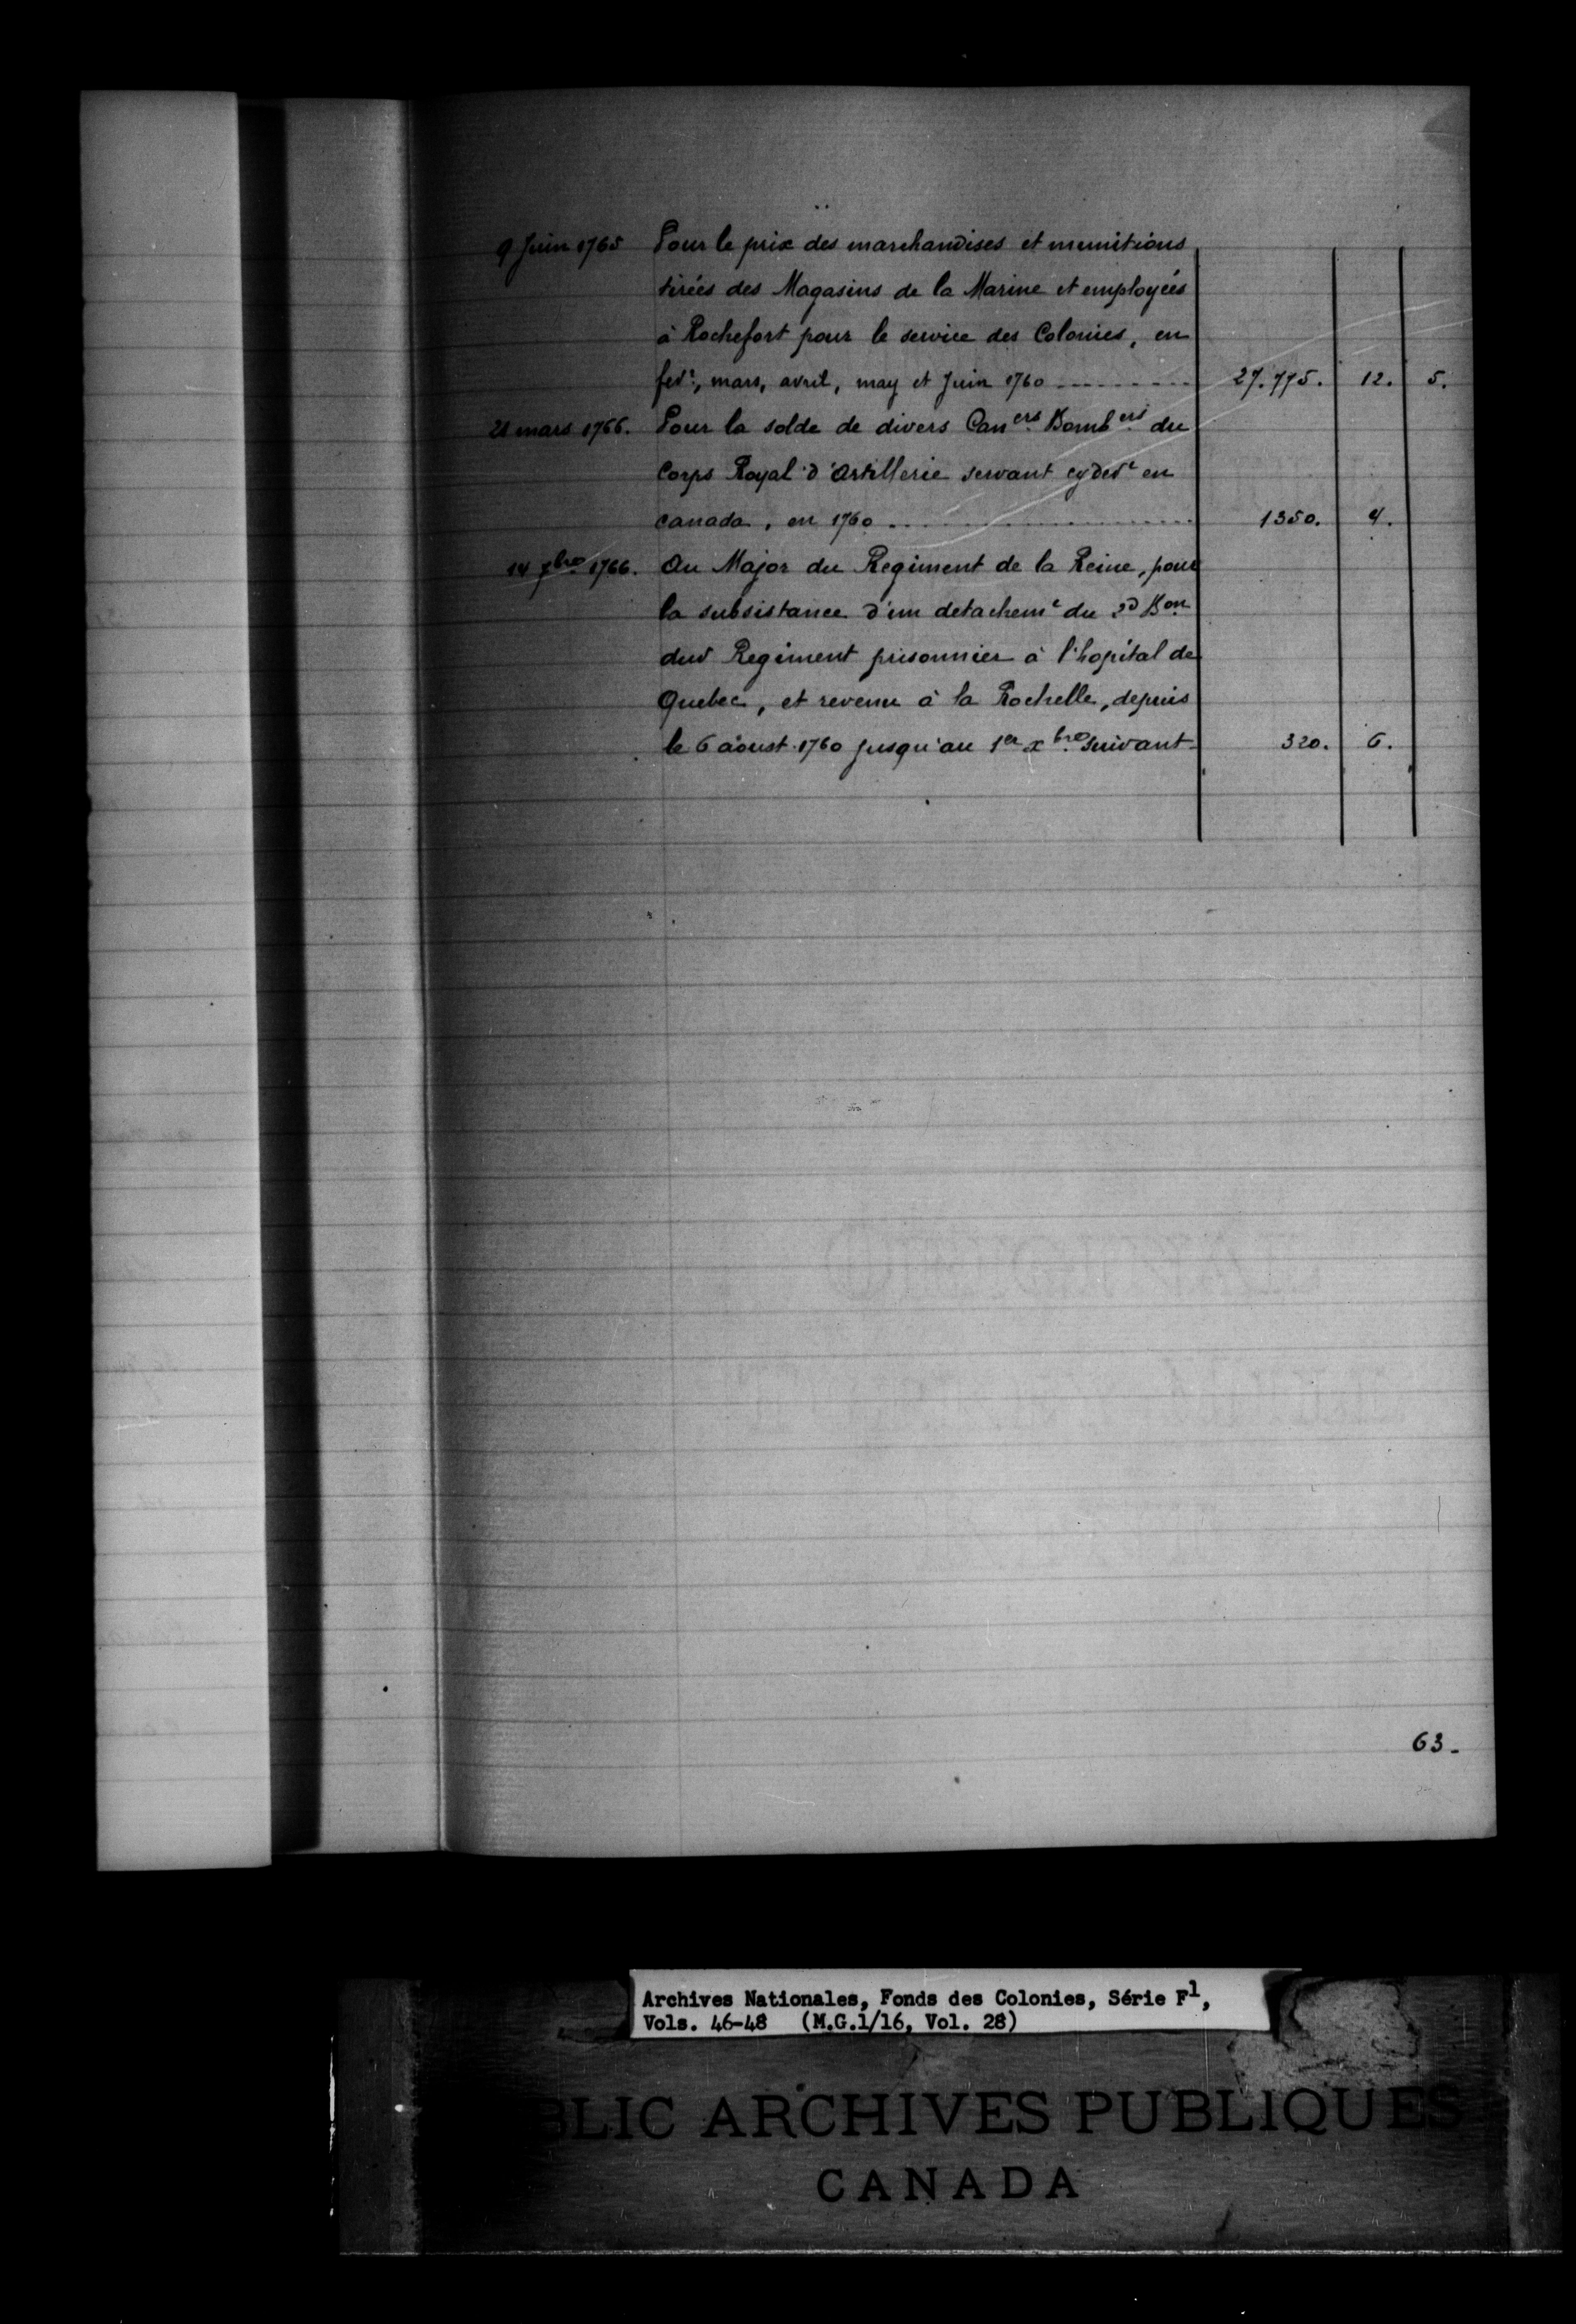 9 Juin 1765 Pour le prix des marchandises et munitions
tirées des Magasins de la Marine et employées
à Rochefort pour le service des Colonies, en
fevr, mars, avril, may et Juin 1760 27.775. 12. 5.
21 mars 1766. Pour la solde de divers Caners Bombers du
Corps Royal d'Artillerie servant cydevt en
canada, en 1760 1350. 4.
14 xbre 1766. Au Major du Regiment de la Reine, pour
la subsistance d'un detachemt du 2d Bon
dud Regiment prisonnier à l'hopital de
Quebec, et revenu à la Rochelle, depuis
le 6 aoust 1760 jusqu'au 1er xbre suivant 320. 6.
63
Archives Nationales, Fonds des Colonies, Série F1,
Vols. 46-48 (M.G.1/16, Vol. 28)
BLIC ARCHIVES PUBLIQUES
CANADA